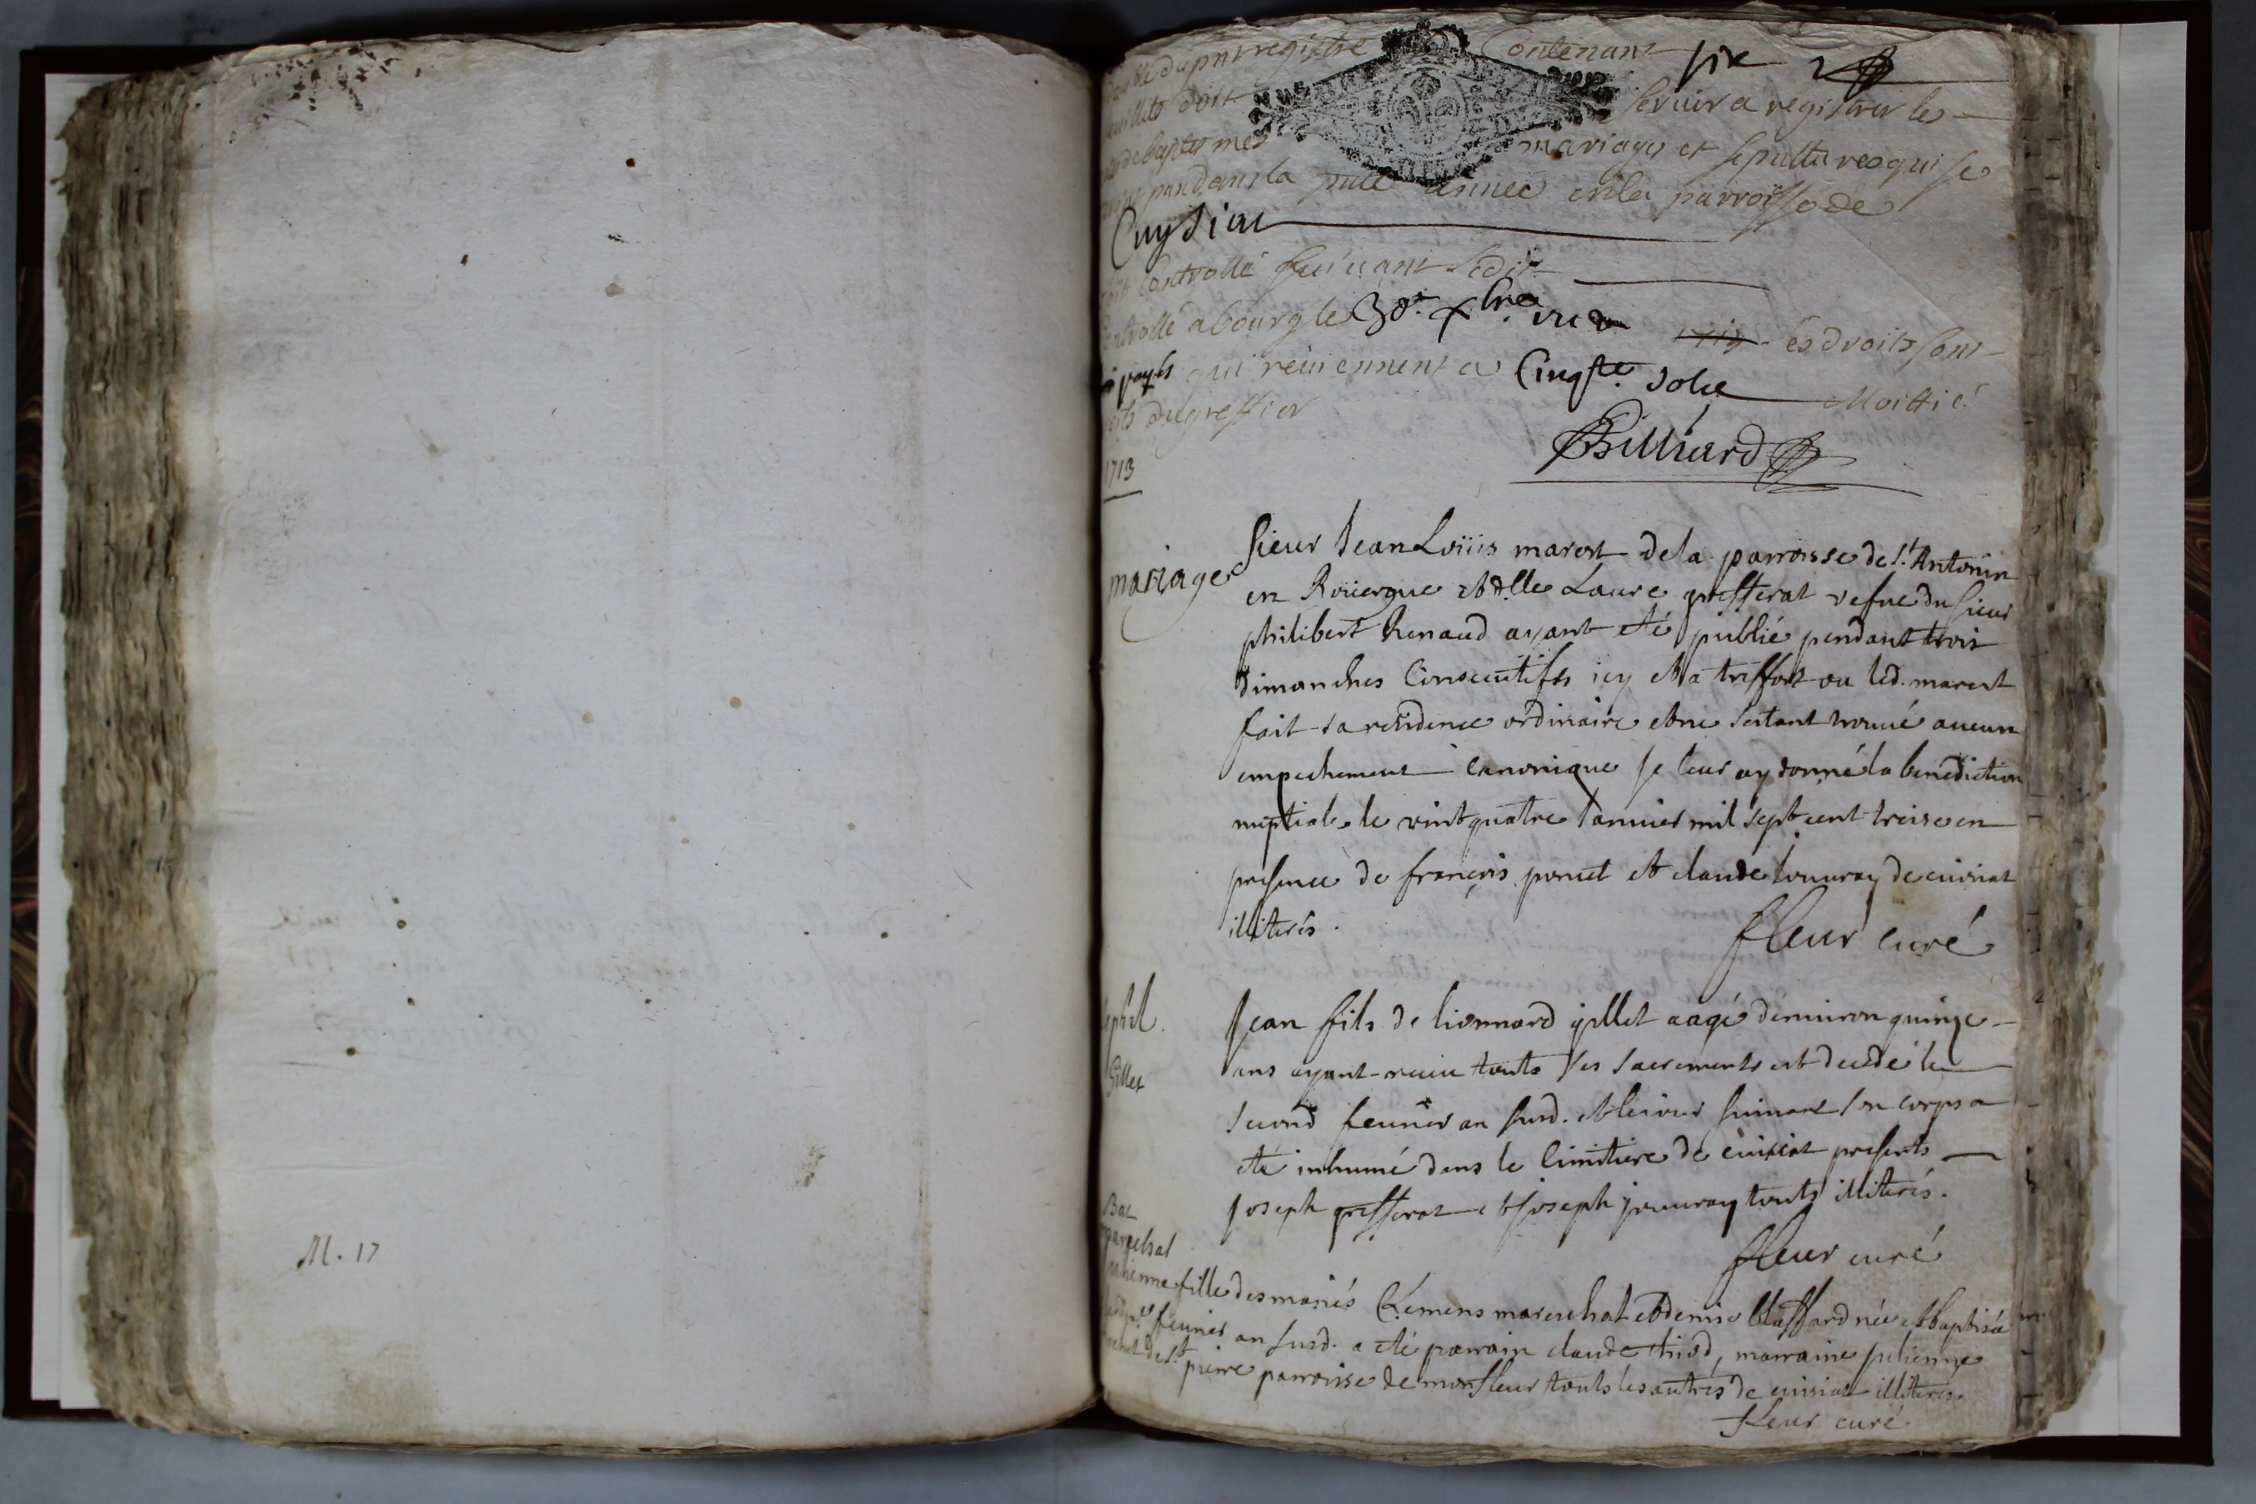 du pnt registre Contenant six
doit servir a registrer les
de baptesmes mariages et sepultures qui se
pandans la pnte année en la parroisse de
Cuysiat
Controllé suivant ledit
Controllé a bourg le 30.e xbre 1712 les droits sont
payés qui reviennent a Cinqte. sols Moittié
du greffier
Billiard
1713
mariage
Sieur Jean Loüis marest de la parroisse de St. Antonin
en Roüergue et dlle Laure gresserat vefue du sieur
philibert Renaud ayant eté publié pendant trois
dimanches Consecutifs icy et a treffort ou led. marest
fait sa residence ordinaire et ne s'estant trouué aucun
empechement canonique je leur ay donné la benediction
nuptiale le vint quatre januier mil sept cent treise en
presence de françois ponet et claude Jouuray de cuisiat
illiterés.
fleur curé
Sepul.
Gillet
Jean fils de lionnard gillet aagé d'enuiron quinze
ans ayant receu touts ses sacrements est decedé le
second feurier an susd. et le iour suiuant son corps a
eté inhumé dans le Cimitiere de cuisiat presents
Joseph gresserat et Joseph jouuray touts illiterés.
fleur curé
Bat
marechal
fille des mariés Clemens mareschal et denise blaffard née et baptisée
feurier an susd. a eté parrain claude thiod, marraine julienne
de St. pierre parroisse de monfleur touts les autres de cuisiat illiterés.
fleur curé
M. 17